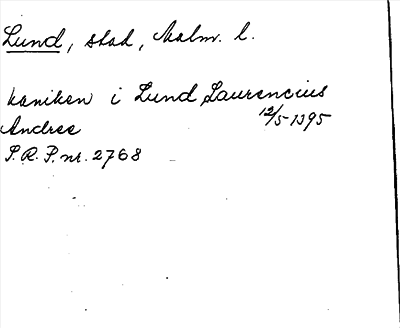 Lund, stad, Malm. l.
kaniken i Lund Laurencius
Andree 12/5 1395
S.R.P. nr. 2768